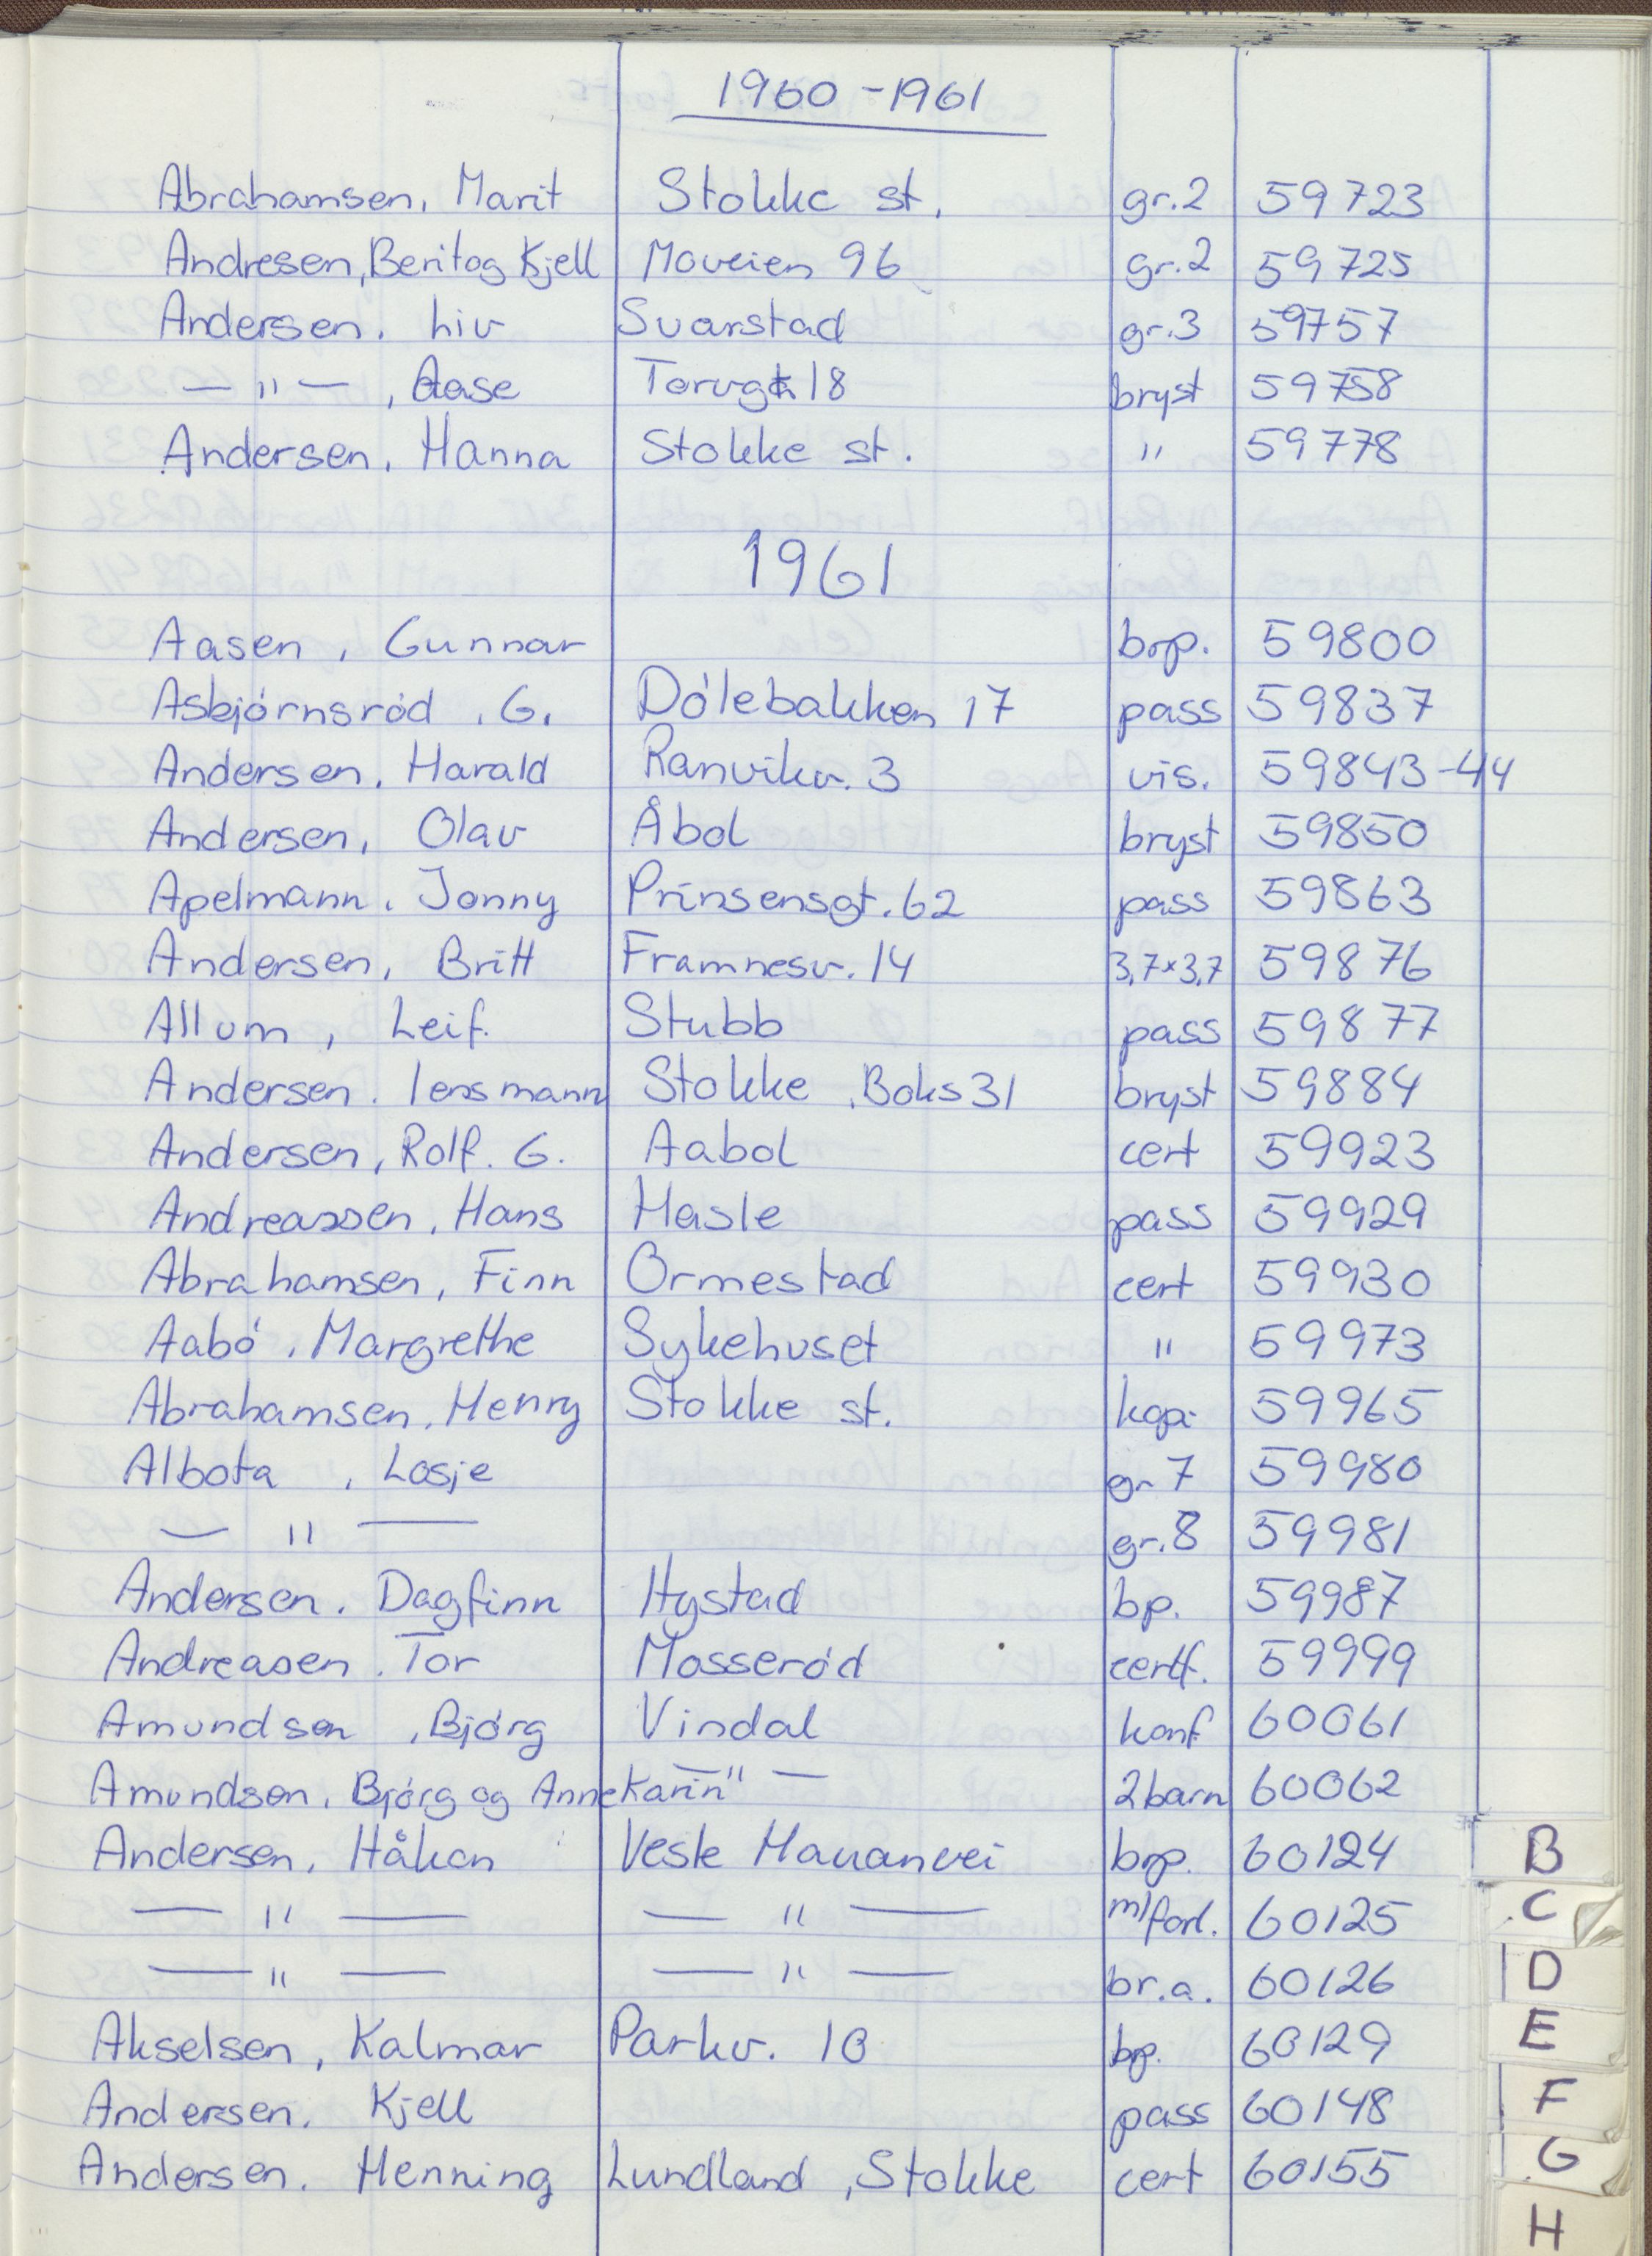 1960-1961
Abrahamsen, Marit Stokke st. gr.2 59723
Andresen, Berit og Kjell Moveien 96 gr.2 59725
Andersen, Liv Svarstad gr.3 59757
— " — , Aase Torvgt 18 bryst 59758
Andersen, Hanna Stokke st. " 59778
1961
Aasen, Gunnar brp. 59800
Asbjórnsród, G. Dólebakken 17 pass 59837
Andersen, Harald Ranvikv. 3 vis. 59843-44
Andersen, Olav Åbol bryst 59850
Apelmann, Jonny Prinsensgt. 62 pass 59863
Andersen, Britt Framnesv. 14 3,7x3,7 59876
Allum, Leif. Stubb pass 59877
Andersen. lensmann Stokke, Boks 31 bryst 59884
Andersen, Rolf. G. Aabol cert 59923
Andreassen, Hans Hasle pass 59929
Abrahamsen, Finn Ormestad cert 59930
Aabó, Margrethe Sykehuset " 59973
Abrahamsen, Henry Stokke st. kopi 59965
Albota, Losje gr 7 59980
— " — gr.8 59981
Andersen. Dagfinn Hystad bp. 59987
Andreasen. Tor Mosseród certf. 59999
Amundsen, Bjórg Vindal konf 60061
Amundsen, Bjórg og Anne Karin — " — 2 barn 60062
Andersen, Håkon Vesle Mauanvei brp. 60124
— " — — " — m/forl. 60125
— " — — " — br.a. 60126
Akselsen, Kalmar Parkv. 10 bp. 60129
Andersen, Kjell pass 60148
Andersen. Henning Lundland, Stokke cert 60155
B
C
D
E
F
G
H